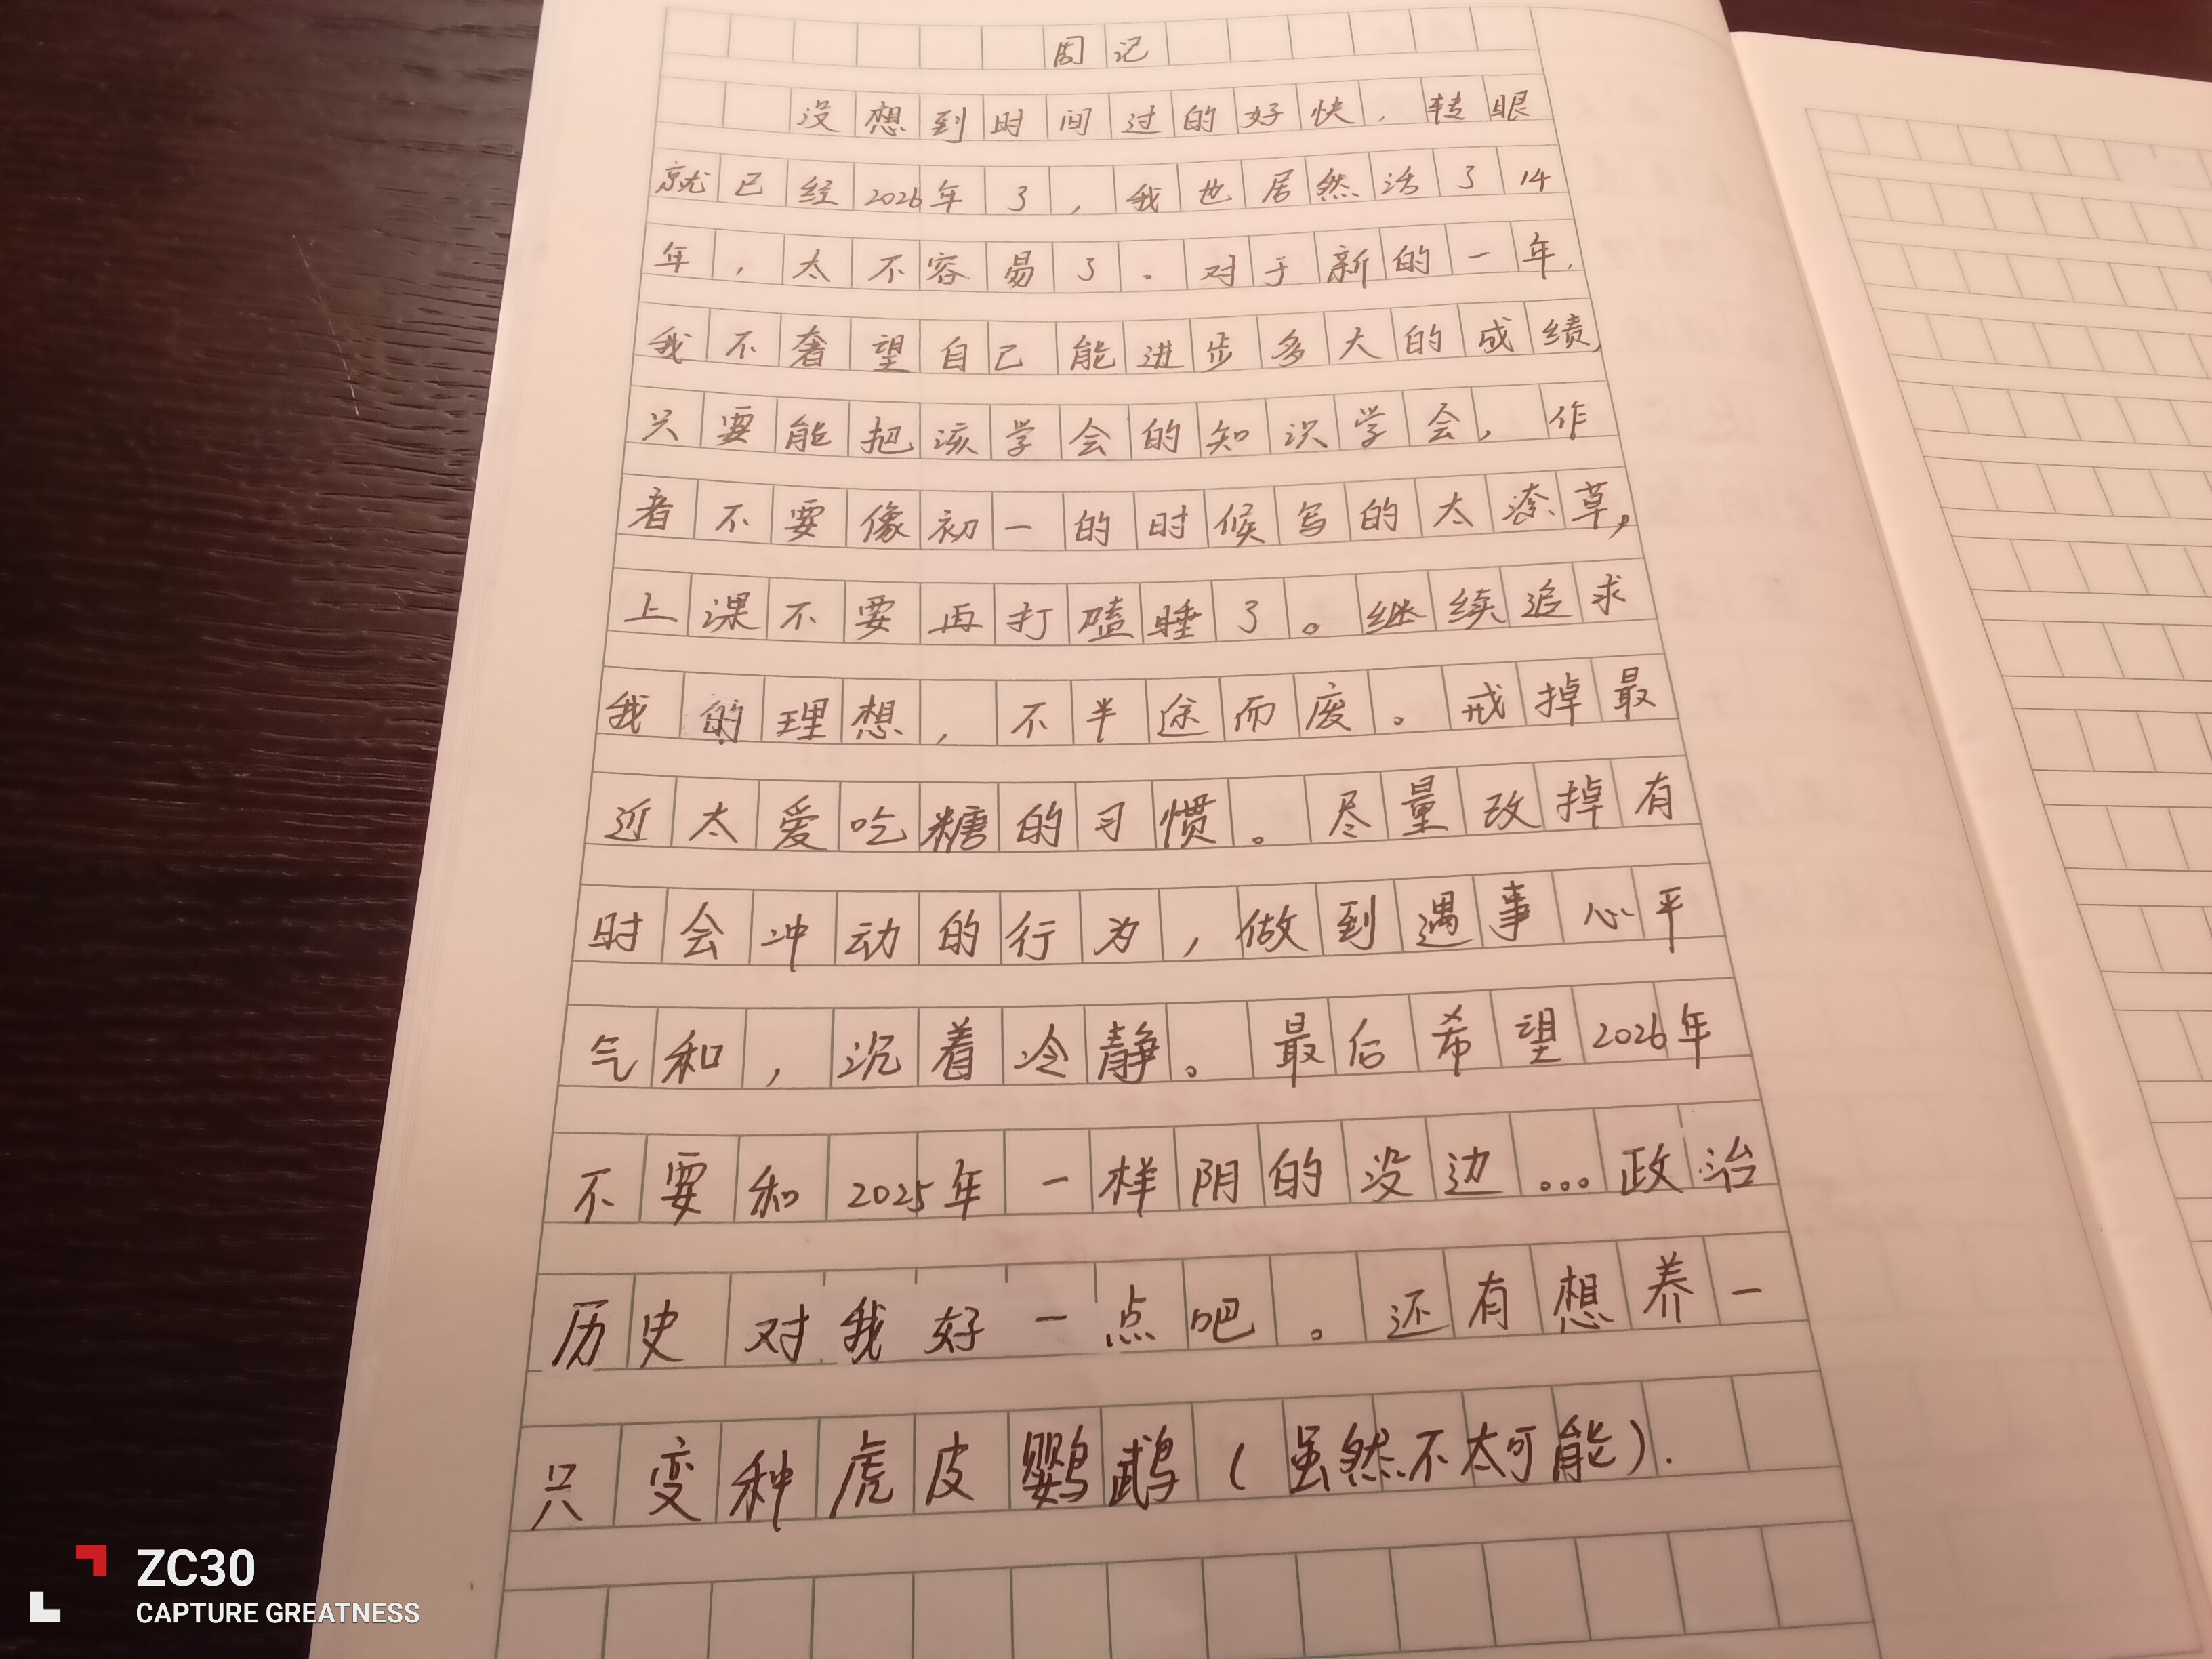 周记
没想到时间过的好快，转眼
就已经2026年了，我也居然活了14
年，太不容易了。对于新的一年，
我不奢望自己能进步多大的成绩，
只要能把该学会的知识学会，作
者不要像初一的时候写的太潦草，
上课不要再打瞌睡了。继续追求
我的理想，不半途而废。戒掉最
近太爱吃糖的习惯。尽量改掉有
时会冲动的行为，做到遇事心平
气和，沉着冷静。最后希望2026年
不要和2025年一样阴的没边...政治
历史对我好一点吧。还有想养一
只变种虎皮鹦鹉（虽然不太可能）.
ZC30
CAPTURE GREATNESS